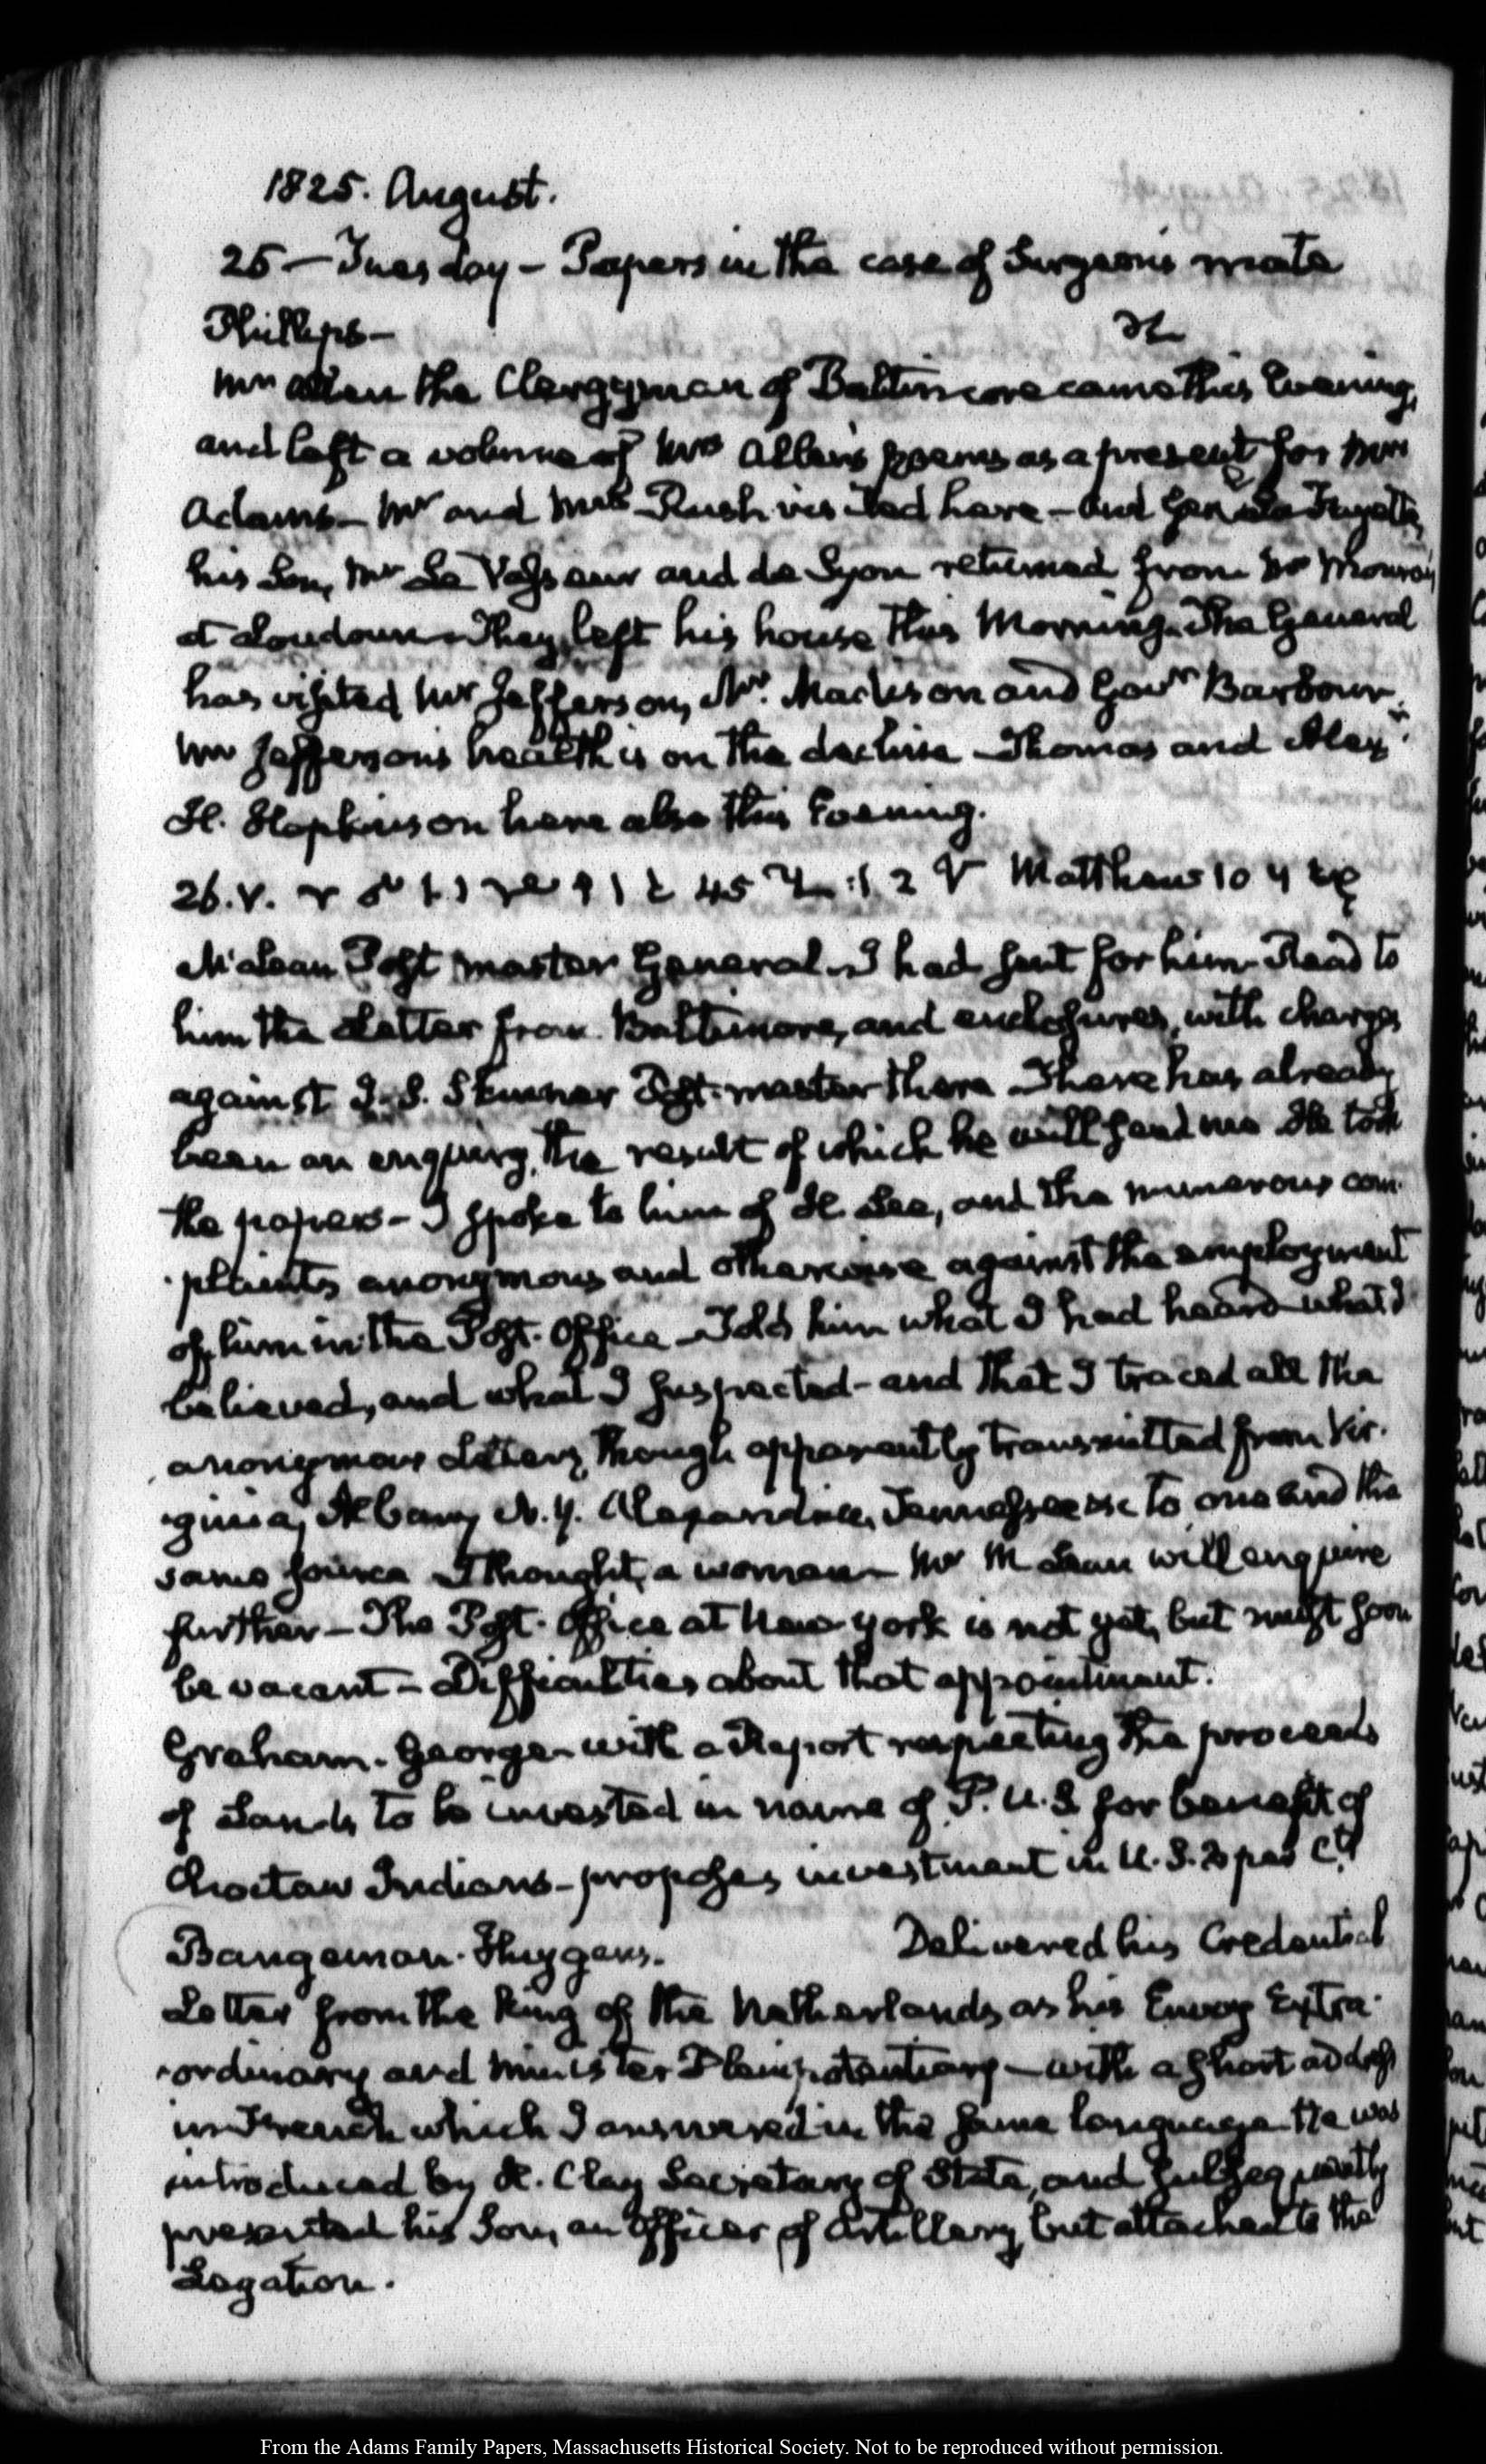 1825. August.
25 — Tuesday – Papers in the case of Surgeon's mate
Phillips –
Mr Allen the Clergyman of Baltimore came this Evening,
and left a volume of Mrs Allen's poems as a present for Mrs
Adams – Mr and Mrs Rush visited here – and Genl La Fayette,
his Son, Mr Le Vasseur and de Syon returned from Mr Monroe,
at Loudoun – They left his house this Morning. The General
has visited Mr Jefferson, Mr. Madison and Govr Barbour.
Mr Jefferson's health is on the decline – Thomas and Alexr.
H. Hopkinson here also this Evening.
26. V. 45 2 Matthew 10 4
McLean Post master General – I had sent for him – Read to
him the Letter from Baltimore, and enclosures, with charges
against J. S. Skinner Post-master there – There has already
been an enquiry, the result of which he will send me He took
the papers – I spoke to him of H Lee, and the numerous com-
-plaints anonymous and otherwise against the employment
of him in the Post-Office – Told him what I had heard what I
believed, and what I suspected – and that I traced all the
anonymous Letters, though apparently transmitted from Vir-
-ginia, Albany N. Y. Alexandria, Tennessee &c to one and the
same source I thought, a woman – Mr McLean will enquire
further – The Post-Office at New York is not yet, but must soon
be vacant – Difficulties about that appointment.
Graham. George – with a Report respecting the proceeds
of Lands to be invested in name of P. U. S for benefit of
Choctaw Indians – proposes investment in U. S. 3 per Cts
Bangeman-Huygens. Delivered his Credential
Letter from the King of the Netherlands, as his Envoy Extra-
-ordinary and Minister Plenipotentiary – with a short address
in French which I answered in the same language He was
introduced by H. Clay Secretary of State, and subsequently
presented his Son, an Officer of Artillery, but attached to the
Legation.
From the Adams Family Papers, Massachusetts Historical Society. Not to be reproduced without permission.